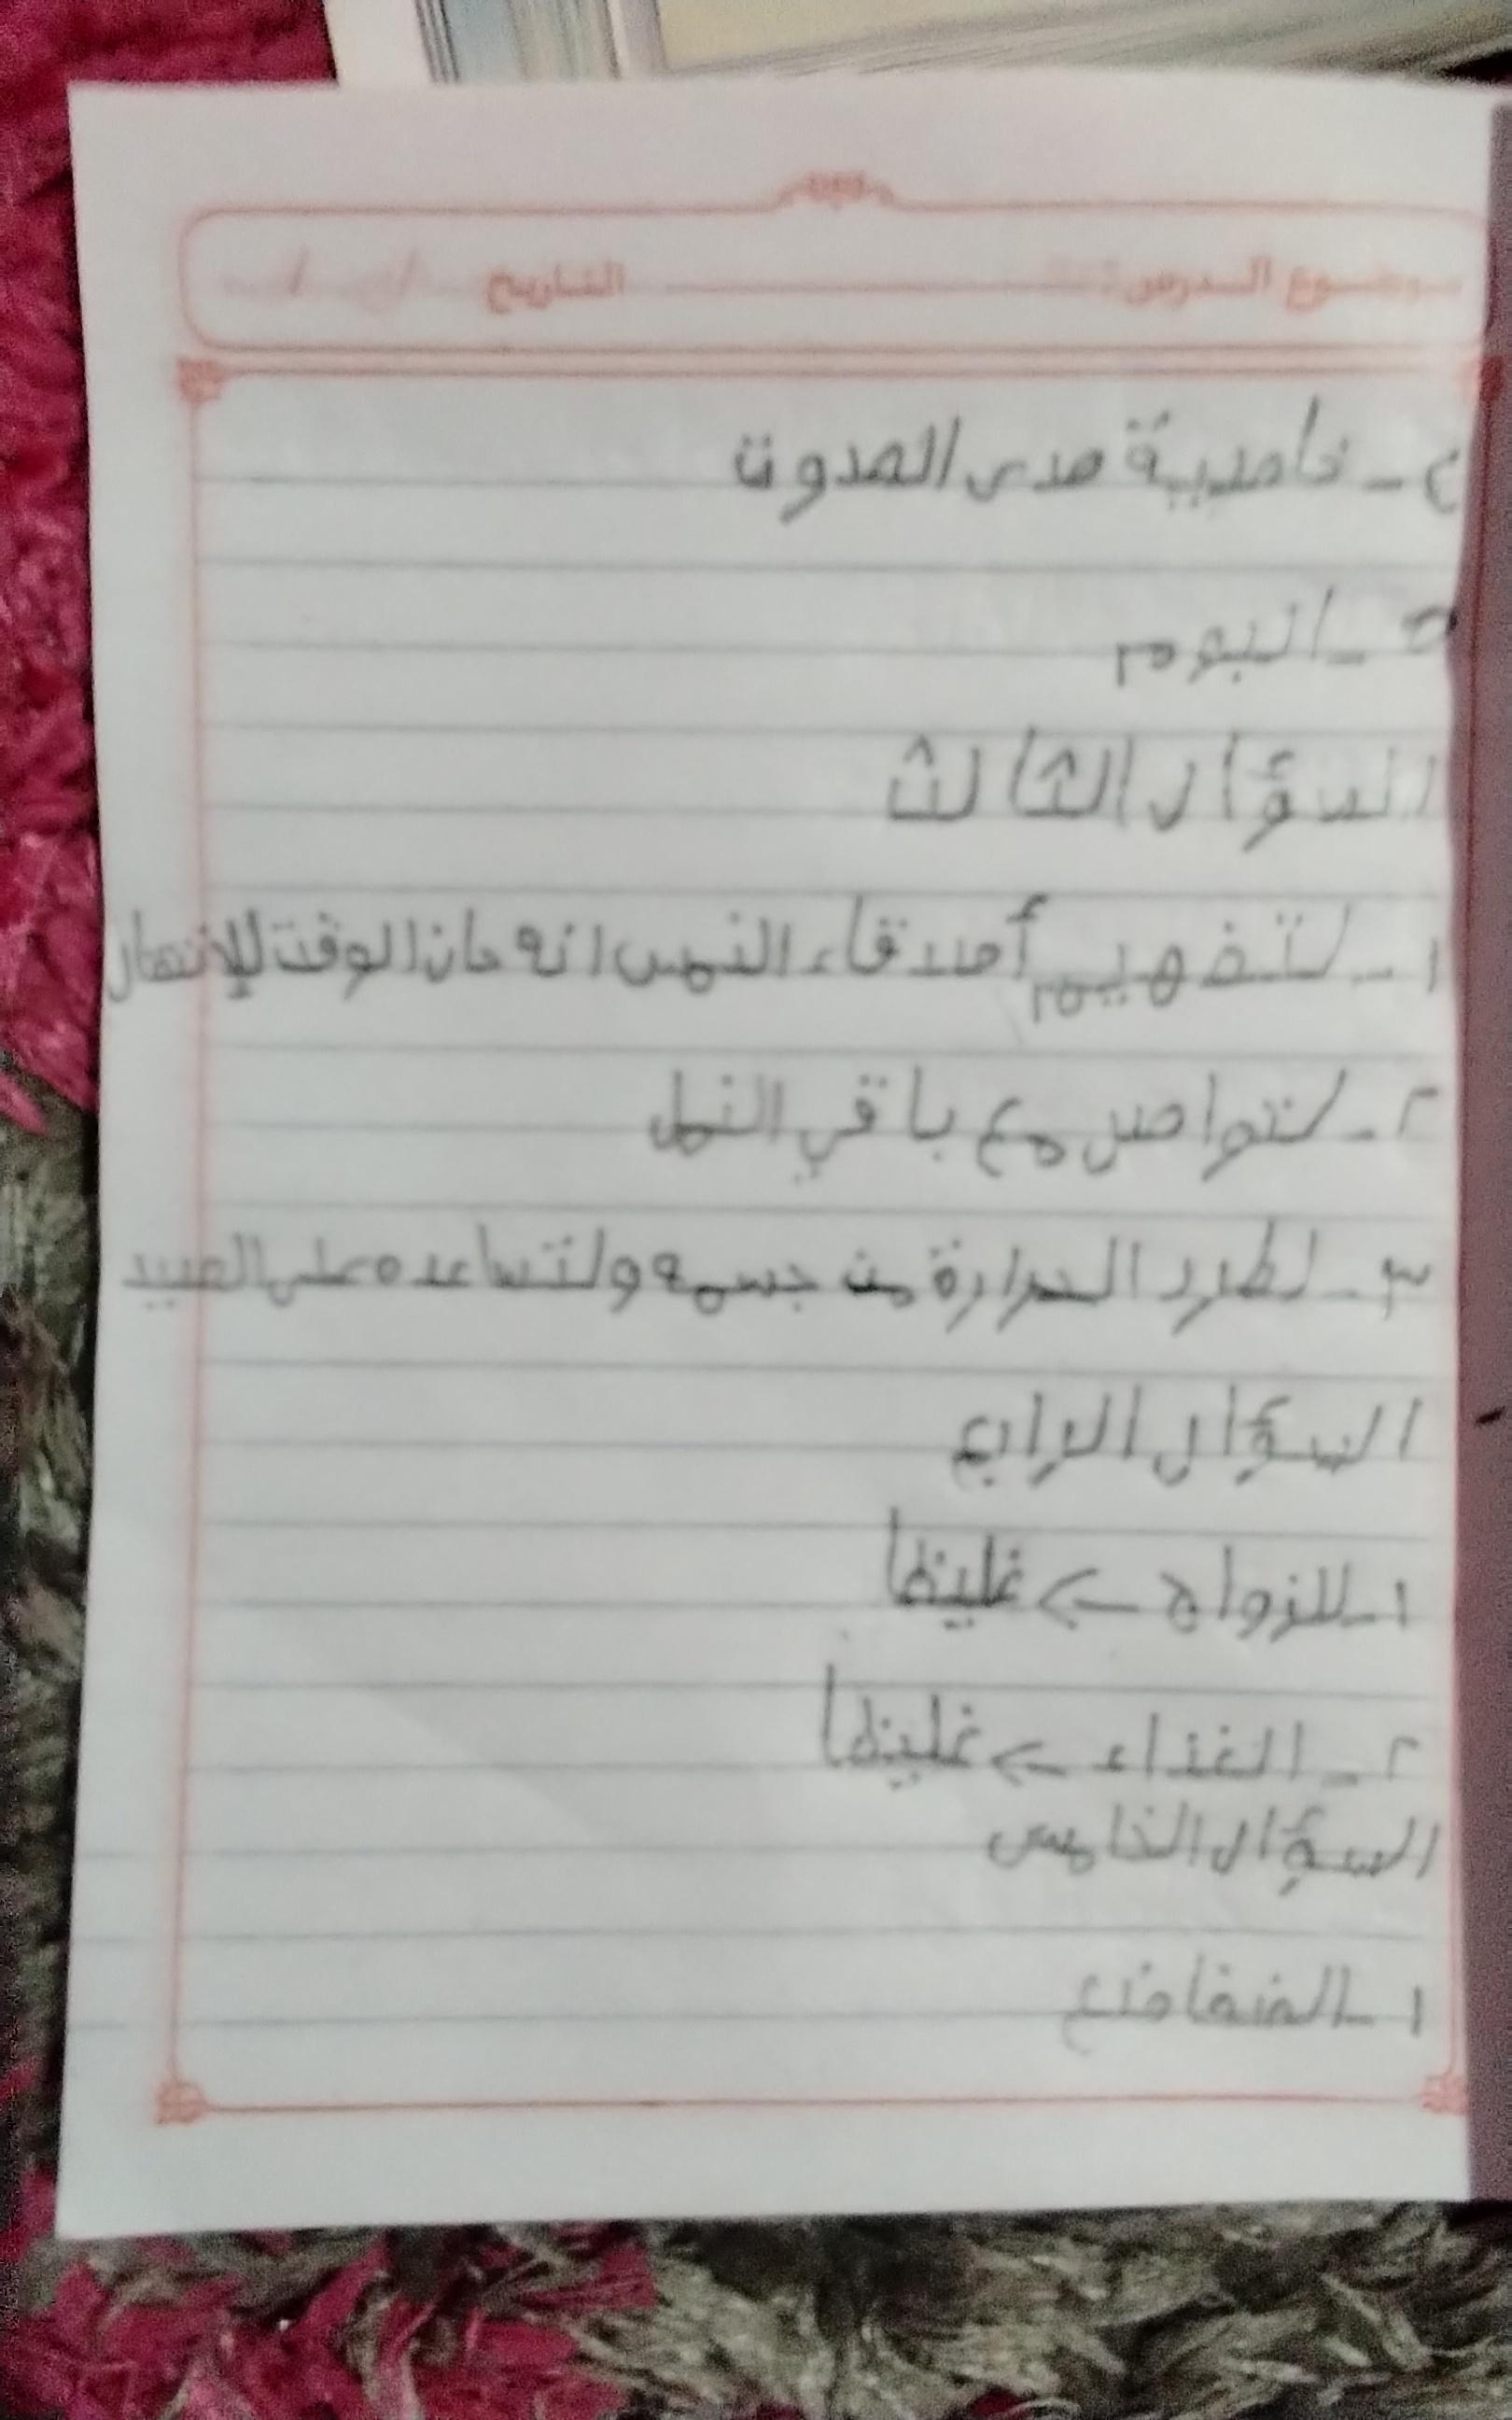 موضوع الدرس: التاريخ / /
٤ - خاصية صدى الصوت
٥ - البوم
السؤال الثالث
١ - لتفهيم أصدقاء النمس انه حان الوقت للإنتقال
٢ - لتواصل مع باقي النمل
٣ - لطرد الحرارة من جسمه ولتساعده على الصيد
السؤال الرابع
١ - للزواج ← غليظا
٢ - الغذاء ← غليظا
السؤال الخامس
١ - الضفادع